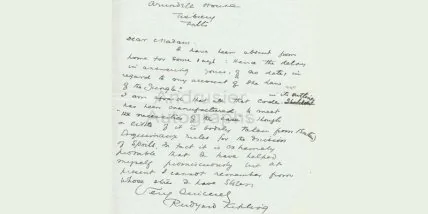 Arundell House
Tisbury
Wilts
Dear Madam
I have been absent from
home for some days: hence the delay
in answering yours, of the date, in
regard to my account of the Law
of the Jungle.
I am afraid that all that code in its outlines
has been manufactured to meet
"the necessities of the case": though
a little of it is bodily taken from (the)
Esquimaux rules for the division
of spoils. In fact it is extremely
probable that I have helped
myself promiscuously but at
present I cannot remember from
whose stories I have stolen
Very sincerely
Rudyard Kipling
Adrusier
Autographs